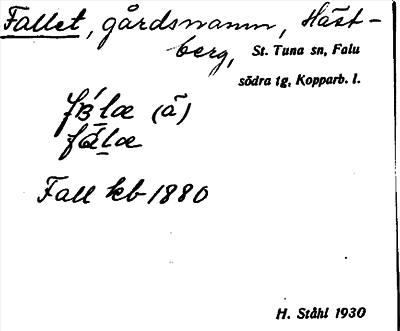 Fallet, gårdsnamn, Häst-
berg, St. Tuna sn, Falu
södra tg, Kopparb. l.
(ä)
Fall kb 1880
H. Ståhl 1930